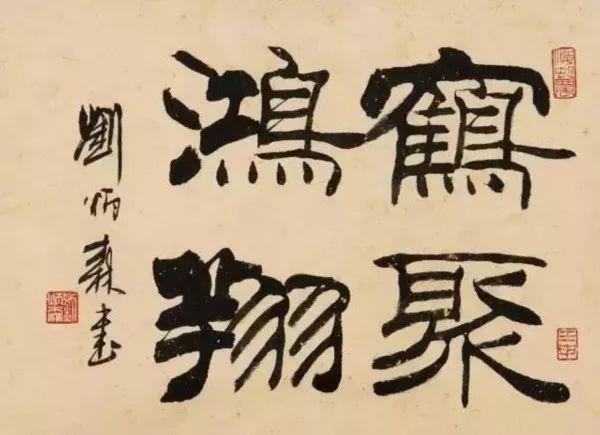 鶴聚
鴻翔
劉炳森書